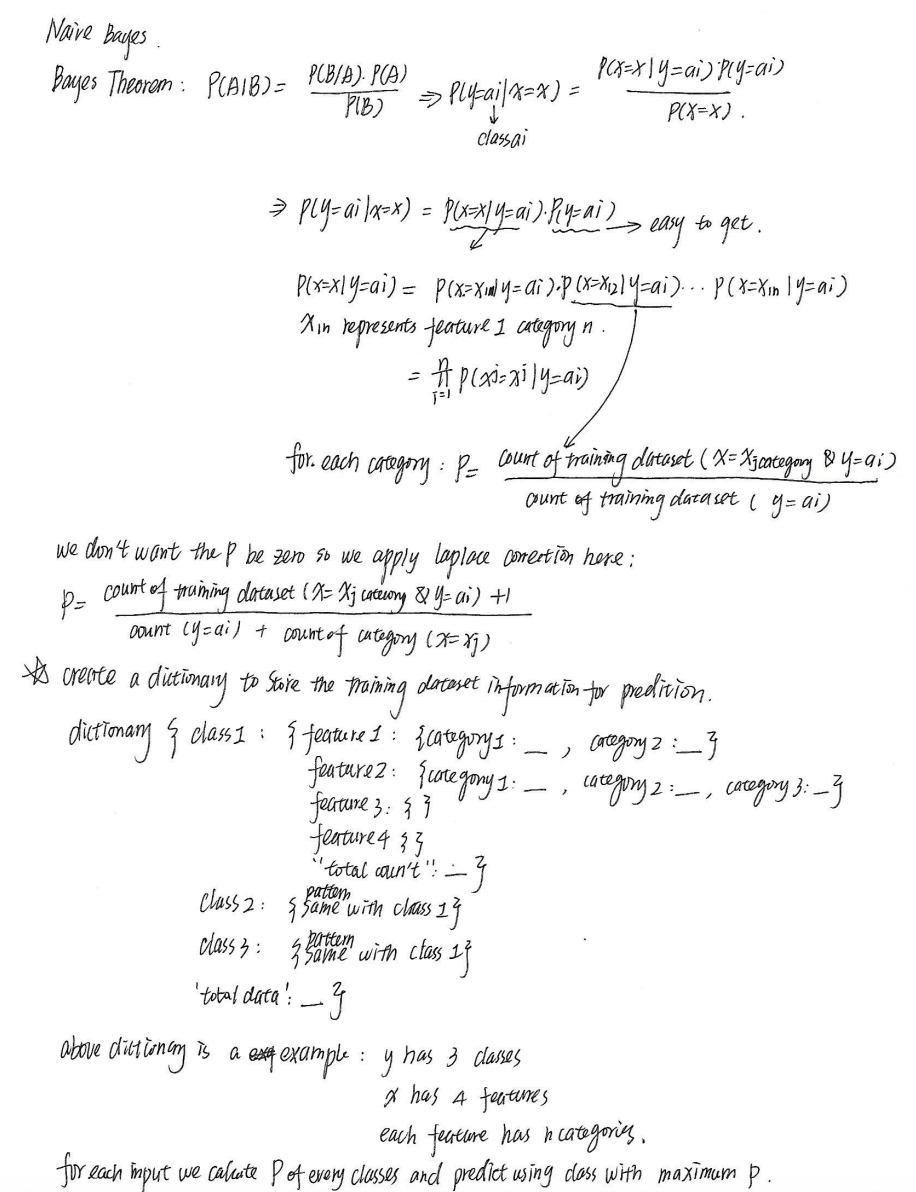 Naive Bayes.
Bayes Theorem: P(A|B) = P(B|A)·P(A) / P(B) ⇒ P(y=ai|x=x) = P(X=x|y=ai)P(y=ai) / P(X=x).
↓
class ai
⇒ P(y=ai|x=x) = P(x=x|y=ai)·P(y=ai) → easy to get.
P(x=x|y=ai) = P(x=xi1|y=ai)·P(x=x12|y=ai)... P(x=x1n|y=ai)
X1n represents feature 1 category n.
= ∏ⁿj=1 P(xj=xj|y=ai)
for. each category: P= count of training dataset (X=Xjcategory & y=ai) / count of training dataset (y=ai)
we don't want the P be zero so we apply laplace correction here:
P= count of training dataset (X=Xj category & y=ai) +1 / count (y=ai) + count of category (x=xj)
☆ create a dictionary to store the training dataset information for predition.
dictionary { class1: { feature1: {category1: _ , category2: _}
feature2: {category1: _ , category2: _, category3: _}
feature3: { }
feature4 { }
"total coun't": _ }
class2: { same pattern with class 1}
class3: { same pattern with class 1}
'total data': _ }
above dictionary is a example: y has 3 classes
x has 4 features
each feature has n categories.
for each input we calcute P of every classes and predict using class with maximum P.